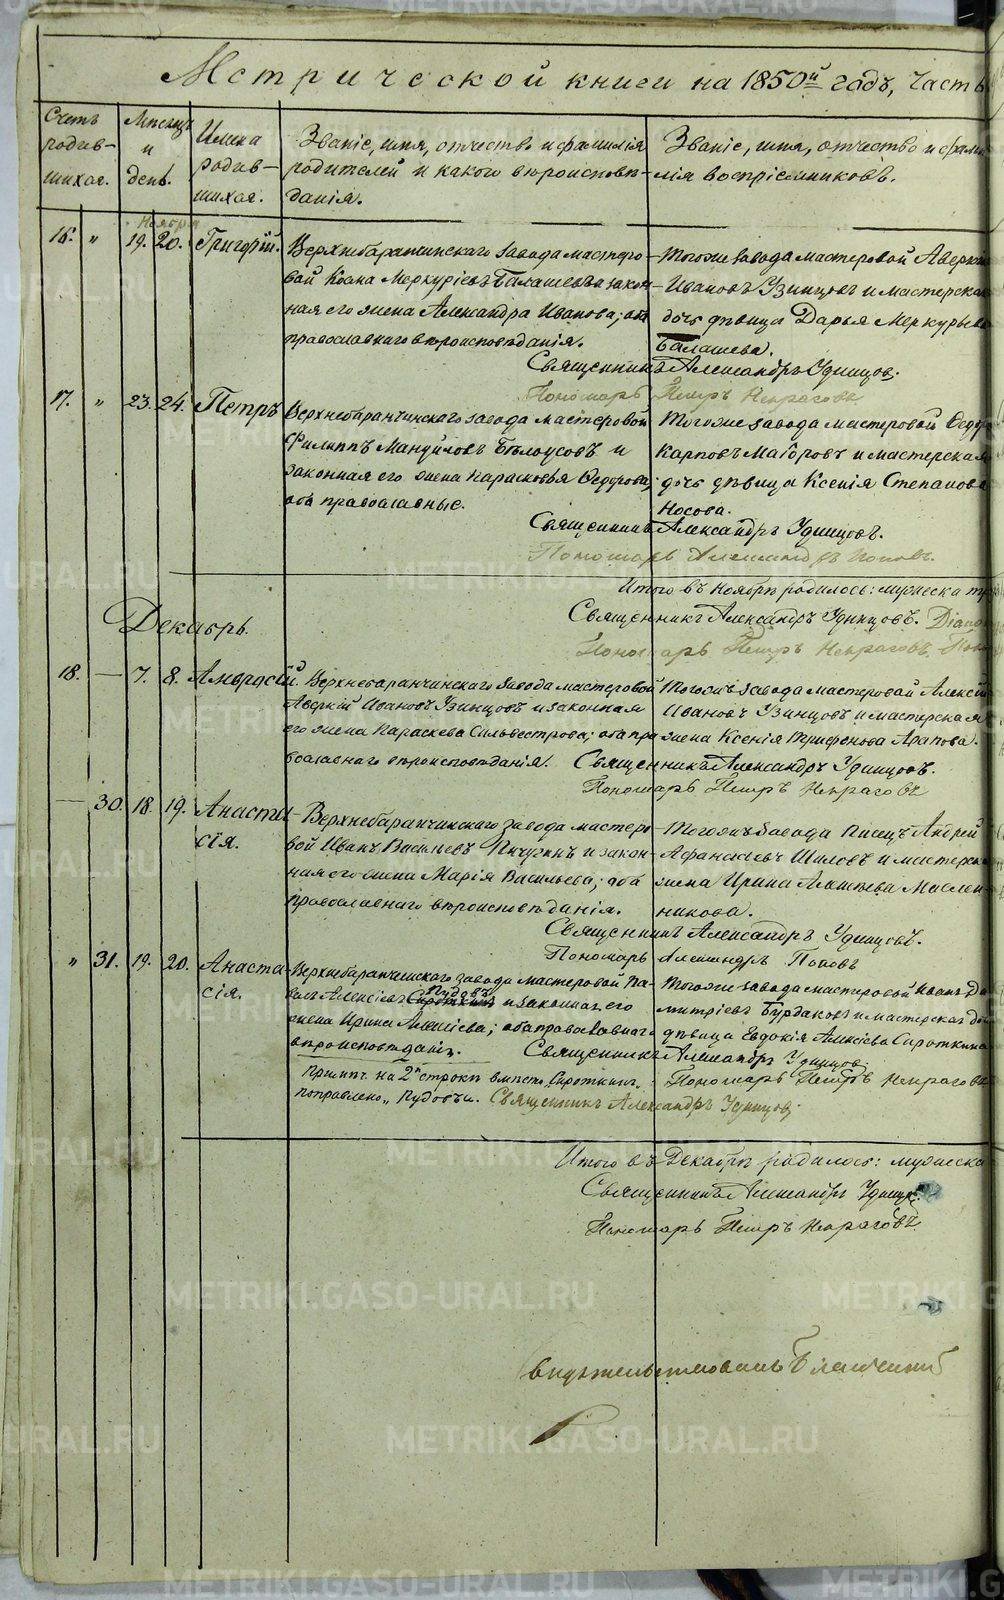 Метрической книги на 1850й годъ, часть
Счетъ родив-шихся.
Мѣсяцъ и день.
Имена родив-шихся.
Званіе, имя, отчество и фамилія
родителей и какого вѣроисповѣ-
данія.
Званіе, имя, отчество и фами-
лія воспріемниковъ.
Ноября
16. " 19. 20. Григорій.
Верхнебаранчинскаго завода мастеро-
вой Козма Меркурьевъ Балашевъ и закон-
ная его жена Александра Иванова; оба
православнаго вѣроисповѣданія.
Тогоже завода мастеровой Аверкій
Ивановъ Узинцовъ и мастерская
дочь дѣвица Дарья Меркурьева
Балашева.
Священникъ Александръ Удинцовъ.
Пономарь Петръ Некрасовъ
17. " 23. 24. Петръ
Верхнебаранчинскаго завода мастеровой
Филиппъ Мануйловъ Бѣлоусовъ и
законная его жена Парасковья Ѳедорова,
оба православные.
Тогоже завода мастеровой Ѳедоръ
Карповъ Маіоровъ и мастерская
дочь дѣвица Ксенія Степанова
Носова.
Священникъ Александръ Удинцовъ.
Пономарь Александръ Поповъ.
Итого въ Ноябрѣ родилось: мужеска
Священникъ Александръ Удинцовъ.
Пономарь Петръ Некрасовъ.
Декабрь.
18. — 7. 8. Амвросій.
Верхнебаранчинскаго завода мастеровой
Аверкій Ивановъ Узинцовъ и законная
его жена Параскева Сильвестрова; оба пра
вославнаго вѣроисповѣданія.
Тогожъ завода мастеровой Алексѣй
Ивановъ Узинцовъ и мастерская
жена Ксенія Трифонова Арапова.
Священникъ Александръ Удинцовъ.
Пономарь Петръ Некрасовъ
— 30. 18. 19. Анаста-
сія.
Верхнебаранчинскаго завода мастеро-
вой Иванъ Васильевъ Пичугинъ и закон-
ная его жена Марія Васильева; оба
православнаго вѣроисповѣданія.
Тогожъ Завода Писецъ Андрей
Афанасьевъ Шиловъ и мастерска
жена Ирина Алексѣева Маслен
никова.
Священникъ Александръ Удинцовъ.
Пономарь Александръ Поповъ
" 31. 19. 20. Анаста-
сія.
Верхнебаранчинскаго завода мастеровой Па-
велъ Алексіевъ Сироткинъ Пудовъ и законная его
жена Ирина Алексіева; оба православнаго
вѣроисповѣданія.
Тогоже завода мастеровой Иванъ Ди
митріевъ Бурдаковъ и мастерская до
дѣвица Евдокія Алексіева Сироткина
Священникъ Александръ Удинцовъ.
Пономарь Петръ Некрасовъ
Примѣч. на 2й строкѣ вмѣсто Сироткинъ
поправлено „Пудовъ". Священникъ Александръ Удинцовъ.
Итого въ Декабрѣ родилось: мужеска
Священникъ Александръ Удинцовъ
Пономарь Петръ Некрасовъ
METRIKI.GASO-URAL.RU